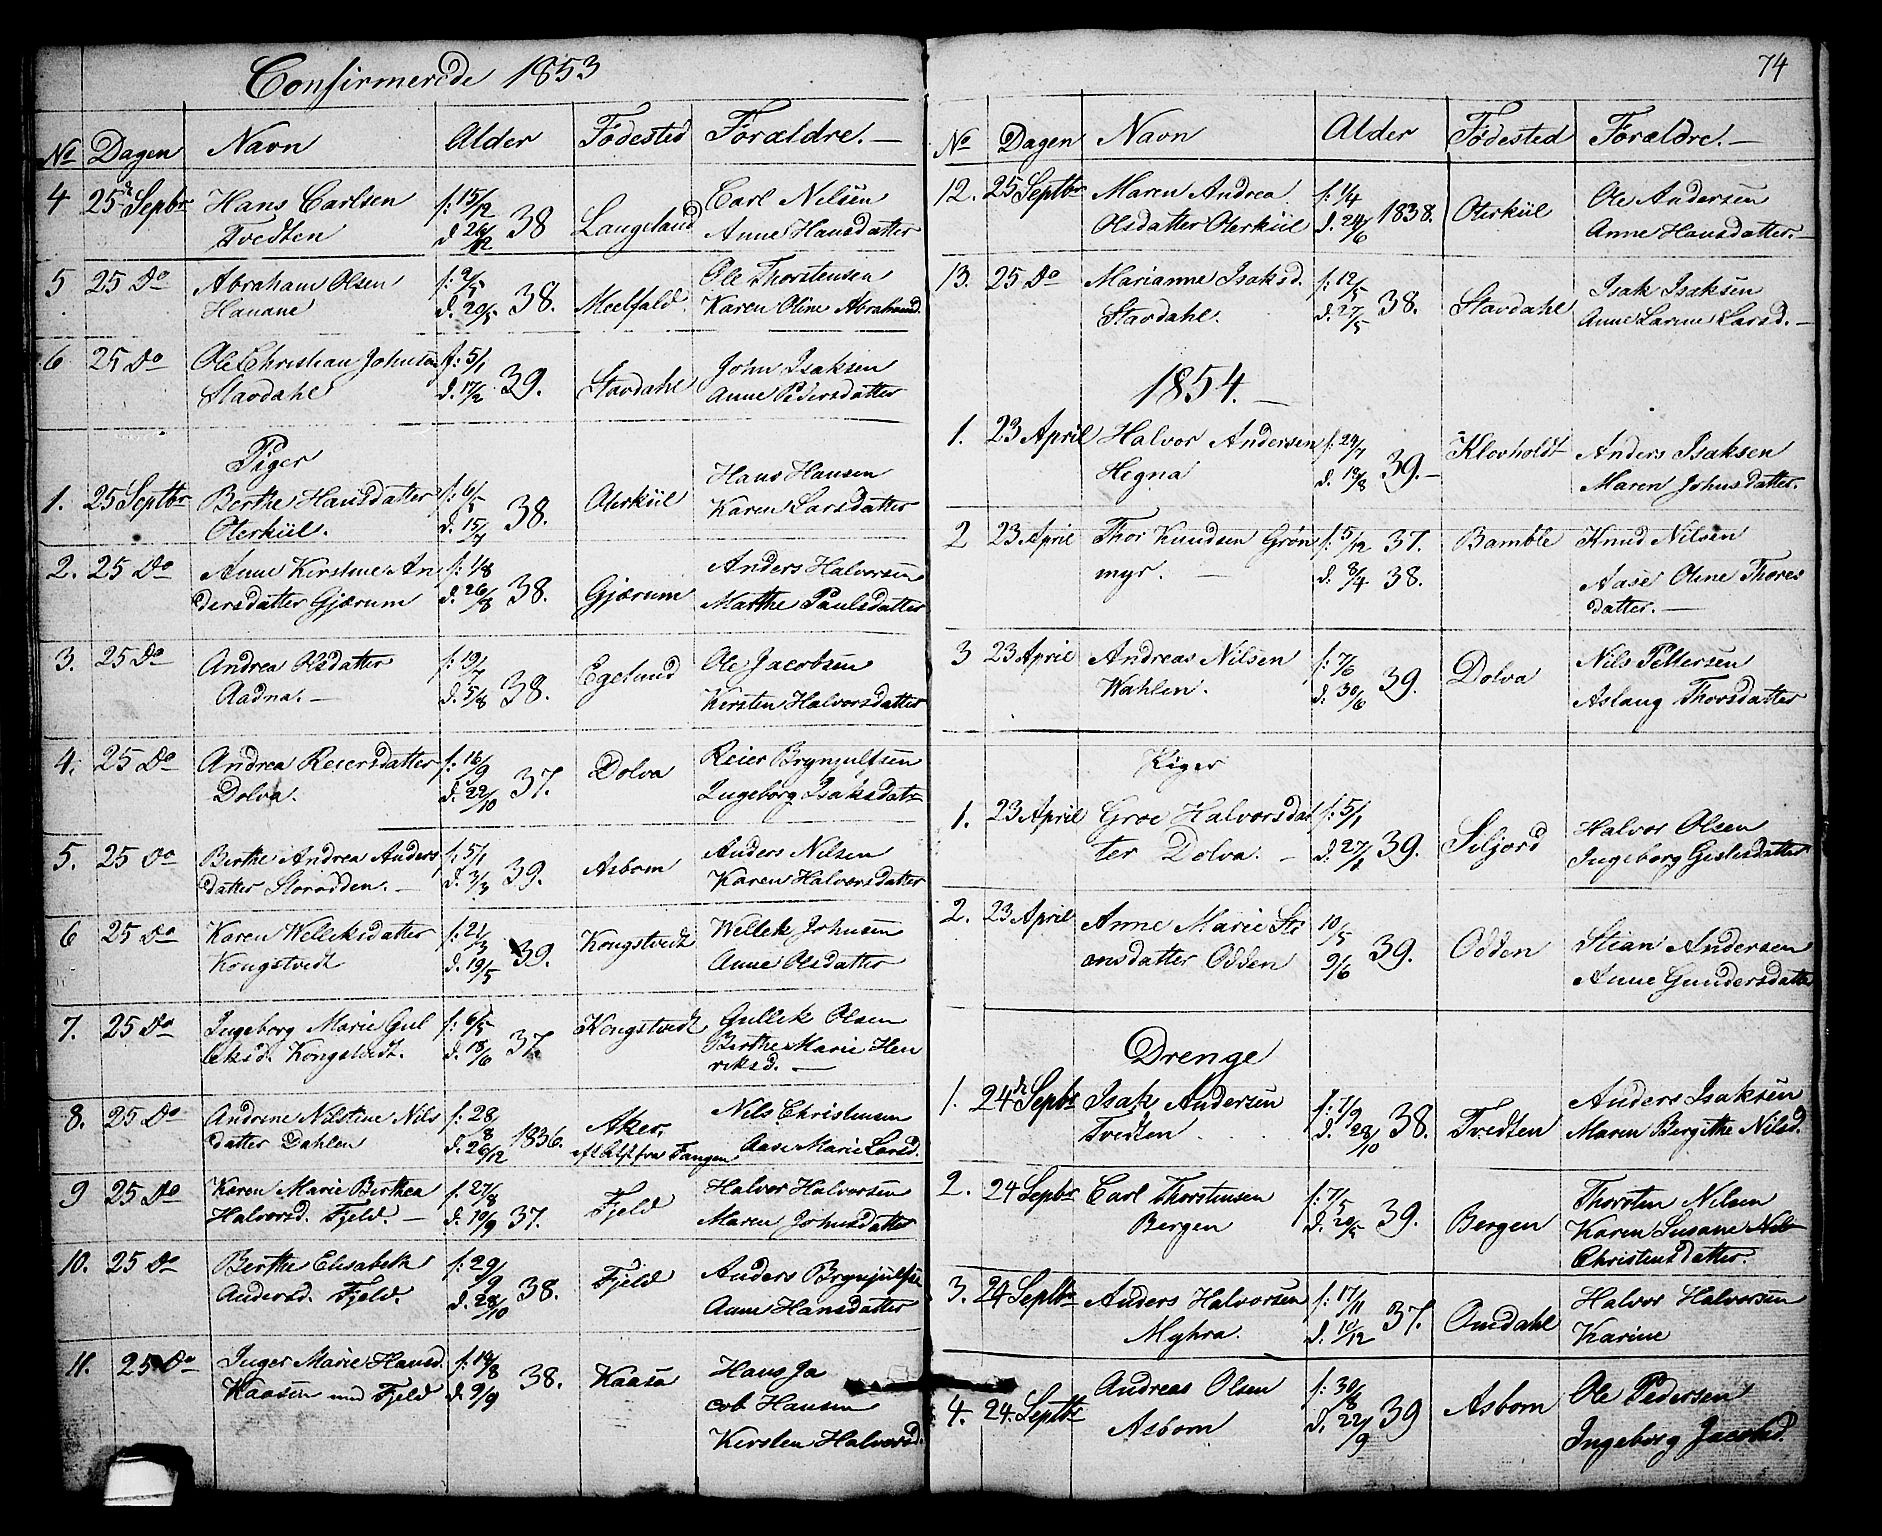 Confirmerede 1853
No Dagen Navn Alder Fødested Forældre. —
4 25de Septbr Hans Carlsen f: 15/12 38 Langeland Carl Nilsen
Tvedten d. 26/12 Anne Hansdatter
5 25 Do Abraham Olsen f: 9/5 38. Meelfald. Ole Thorstensen
Havane d. 20/5 Karen Oline Abrahamd.
6 25 Do Ole Christian Johnsen f: 5/1 39. Stavdahl John Isaksen
Stavdahl d. 17/2 Anne Pedersdatter
Piger
1. 25 Septbr Berthe Hansdatter f: 6/5 38. Oterkiil Hans Hansen
Oterkiil. d. 15/7 Karen Larsdatter
2. 25 Do Anne Kirstine An f: 1/8 38. Gjærum Anders Halvorsen
dersdatter Gjærum d. 26/8 Marthe Paulsdatter
3. 25 Do Andrea Olsdatter f: 19/7 38. Egelund Ole Jacobsen
Aadna. — d. 5/8 Kirsten Halvorsdatter
4. 25 Do Andrea Reiersdatter f: 16/9 37. Dolva Reier Brynjulfsen
Dolva. d. 22/10 Ingeborg Isaksdatr
5. 25 Do Berthe Andrea Anders f: 5/1 39. Asbom Anders Nilsen
datter Storodden. — d. 3/3 Karen Halvorsdatter
6 25 Do Karen Welleksdatter f: 21/3 39. Kongstvedt Wellek Johnsen
Kongstvedt d. 19/5 Anne Olsdatter
7. 25 Do Ingeborg Marie Gul f: 6/5 37. Kongstvedt Gullek Olsen
leksd. Kongstvedt. d. 18/6 Berthe Marie Hen
riksd. —
8. 25 Do Andrine Nilstine Nils f: 28/8 1836. Aker. Nils Christensen
datter Dahlen d. 26/12 fra Tangen Aase Marie Larsd.
9 25 Do Karen Marie Berthea f. 27/8 37. Fjeld Halvor Halvorsen
Halvorsd. Fjeld. — d. 10/9 Maren Johnsdatter
10. 25 Do Berthe Elisabeth f: 29/9 38. Fjeld Anders Brynjulfsen
Andersd. Fjeld. d. 28/10 Anne Hansdatter
11. 25 Do Inger Marie Hansd. f: 19/8 38. Kaasa Hans Ja
Kaasen und Fjeld d. 9/9 cob Hansen
Kirsten Halvorsd.
74
No Dagen Navn Alder Fødested Forældre. —
12. 25 Septbr Maren Andrea f: 1/4 1838. Oterkiil Ole Andersen
Olsdatter Oterkiil d. 24/6 Anne Hansdatter. —
13. 25 Do Marianne Isaksd. f: 12/5 38. Stavdahl Isak Isaksen
Stavdahl. d. 27/5 Anne Larine Larsd. —
1854. —
1. 23 April Halvor Andersen f: 29/7 39. — Klovholdt Anders Isaksen
Hegna d. 19/8 Maren Johnsdatter.
2 23 April Thor Knudsen Grøn f. 5/12 37. Bamble Knud Nilsen
myr. — d. 8/4 38. Aase Oline Thores
datter. —
3 23 April Andreas Nilsen f: 7/6 39. Dolva Nils Pettersen
Wahlen. d. 30/6 Aslaug Thorsdatter
Piger
1. 23 April Groe Halvorsdat f: 5/1 39. Siljord Halvor Olsen
ter Dolva. — d. 27/1 Ingeborg Gislesdatter
2. 23 April Anne Marie Sti 10/5 39. Odden Stian Andersen
ansdatter Odden 9/6 Anne Gundersdatter
Drenge
1. 24de Septbr Isak Andersen f: 7/9 38. Tvedten Anders Isaksen
Tvedten d. 28/10 Maren Bergithe Nilsd.
2. 24 Septbr Carl Thorstensen f: 7/5 39. Bergen Thorsten Nilsen
Bergen d. 20/5 Karen Susane
Christensdatter.
3. 24 Septbr Anders Halvorsen f: 17/11 37. Omdahl Halvor Halvorsen
Myhra. d. 10/12 Karine
4. 24. Septbr Andreas Olsen f: 30/8 39 Asbom Ole Pedersen
Asbom d. 22/9 Ingeborg Jacobsd.